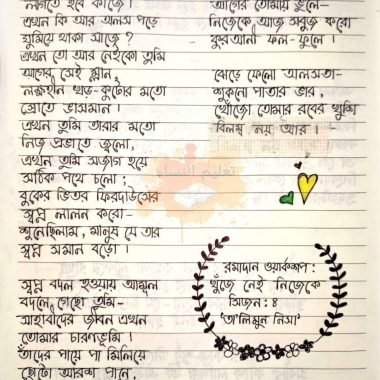 লাগাতে হবে কাজে।
এখন কি আর অলস পড়ে
ঘুমিয়ে থাকা সাজে?
এখন তো আর নেইকো তুমি
আগের সেই ম্লান,
লক্ষ্যহীন খড়-কুটোর মতো
স্রোতে ভাসমান।
এখন তুমি তারার মতো
নিজ প্রভাতে জ্বলো,
এখন তুমি সজাগ হয়ে
সঠিক পথে চলো;
বুকের ভিতর ফিরদাউসের
স্বপ্ন লালন করো–
শুনেছিলাম, মানুষ যে তার
স্বপ্ন সমান বড়ো।
স্বপ্ন বদল হওয়ায় আমূল
বদলে গেছো তুমি–
সাহাবীদের জীবন এখন
তোমার চারণভূমি।
তাঁদের পায়ে পা মিলিয়ে
ছোটো আরশ পানে,
আগের তোমায় ভুলে–
নিজেকে আজ সবুজ করো
কুরআনী ফল-ফুলে।
ঝেড়ে ফেলো অলসতা–
শুকনো পাতার ভার,
খোঁজো তোমার রবের খুশি
বিলম্ব নয় আর।
تعليم النساء
রমাদান ওয়ার্কশপ:
খুঁজে নেই নিজেকে
সিজন: ৪
'তা'লিমুন নিসা'